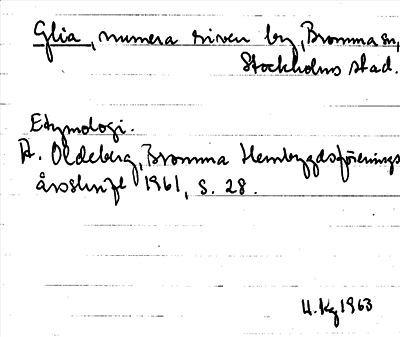 Glia, numera riven by, Bromma sn,
Stockholms stad.
Etymologi.
A. Oldeberg, Bromma Hembygdsförenings
årsskrift 1961, s. 28.
H. Kg 1963